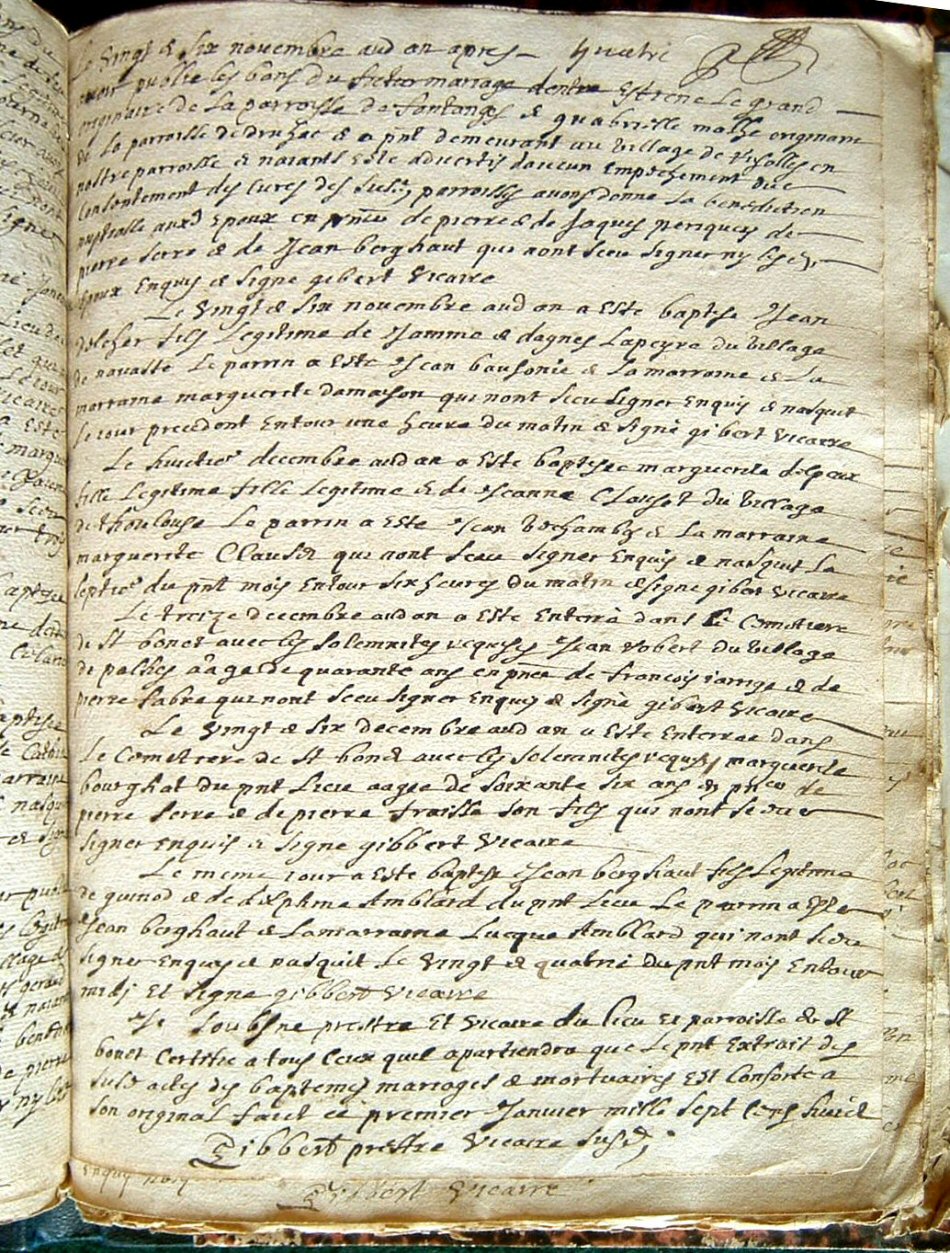 Le vingt & six novembre aud an apres quatri
avoir publie les bans du futur mariage dentre Estiene Legrand
originaire de La parroisse de fontanges & guabrielle malhe originaire
de La parroisse de druhac & a pnt demeurant au village de en
nostre parroisse & naiants este advertis daucun empechement due
Consentement des Cures des susd parroisses avons donne La benediction
nuptialle auxd Epoux en pnce de pierre & de Jaques de
pierre serre & de Jean berghaut qui nont sceu signer ny lesd
Epoux Enquis & signe gibert vicaire
Le vingt & six novembre aud an a Este baptise Jean
delcher fils Legitime de Jamme & dagnes Lapeyre du village
de navaste Le parrin a Este Jean bausonie & La marraine & La
marraine marguerite damaison qui nont sceu signer Enquis & nasquit
Le iour precedent Entour une heure du matin & signe gibert vicaire
Le huictie decembre aud an a Este baptisee marguerite delpeux
fille Legitime fille Legitime & de Jeanne Clauset du village
de thoulouse Le parrin a Este Jean & La marraine
marguerite Clauset qui nont sceu signer Enquis & nasquit La
septie du pnt mois Entour six heures du matin & signe gibert vicaire
Le treize decembre aud an a Este Enterré dans Le Cemetiere
de St bonet avec Les solemnites requises Jean robert du village
de palhes aage de quarante ans en pnce de francois iarrige & de
pierre fabre qui nont sceu signer Enquis & signé gibert vicaire
Le vingt & six decembre aud an a Este Enterree dans
Le Cemetiere de St bonet avec Les solemnites requises marguerite
bourghat du pnt Lieu aagee de soixante six ans & pnce de
pierre serre & de pierre fraisse son fils qui nont sceu
signer enquis & signe gibbert vicaire
Le meme iour a Este baptise Jean berghaut fils Legitime
de guinod & de delphine Amblard du pnt Lieu Le parrin a Este
Jean berghaut & La marraine Lucque Amblard qui nont sceu
signer Enquis & nasquit Le vingt & quatrie du pnt mois Entour
midj Et signe gibbert vicaire
Je soubsne prestre Et vicaire du Lieu Et parroisse de St
bonet Certifie a tous Ceux quil apartiendra que Le pnt Extrait des
susd actes des baptemes mariages & mortuaires Est Conforte a
son original faict ce premier Janvier mille sept Cens huict
Gibbert prestre vicaire susd
enquis non
Gibbert vicaire